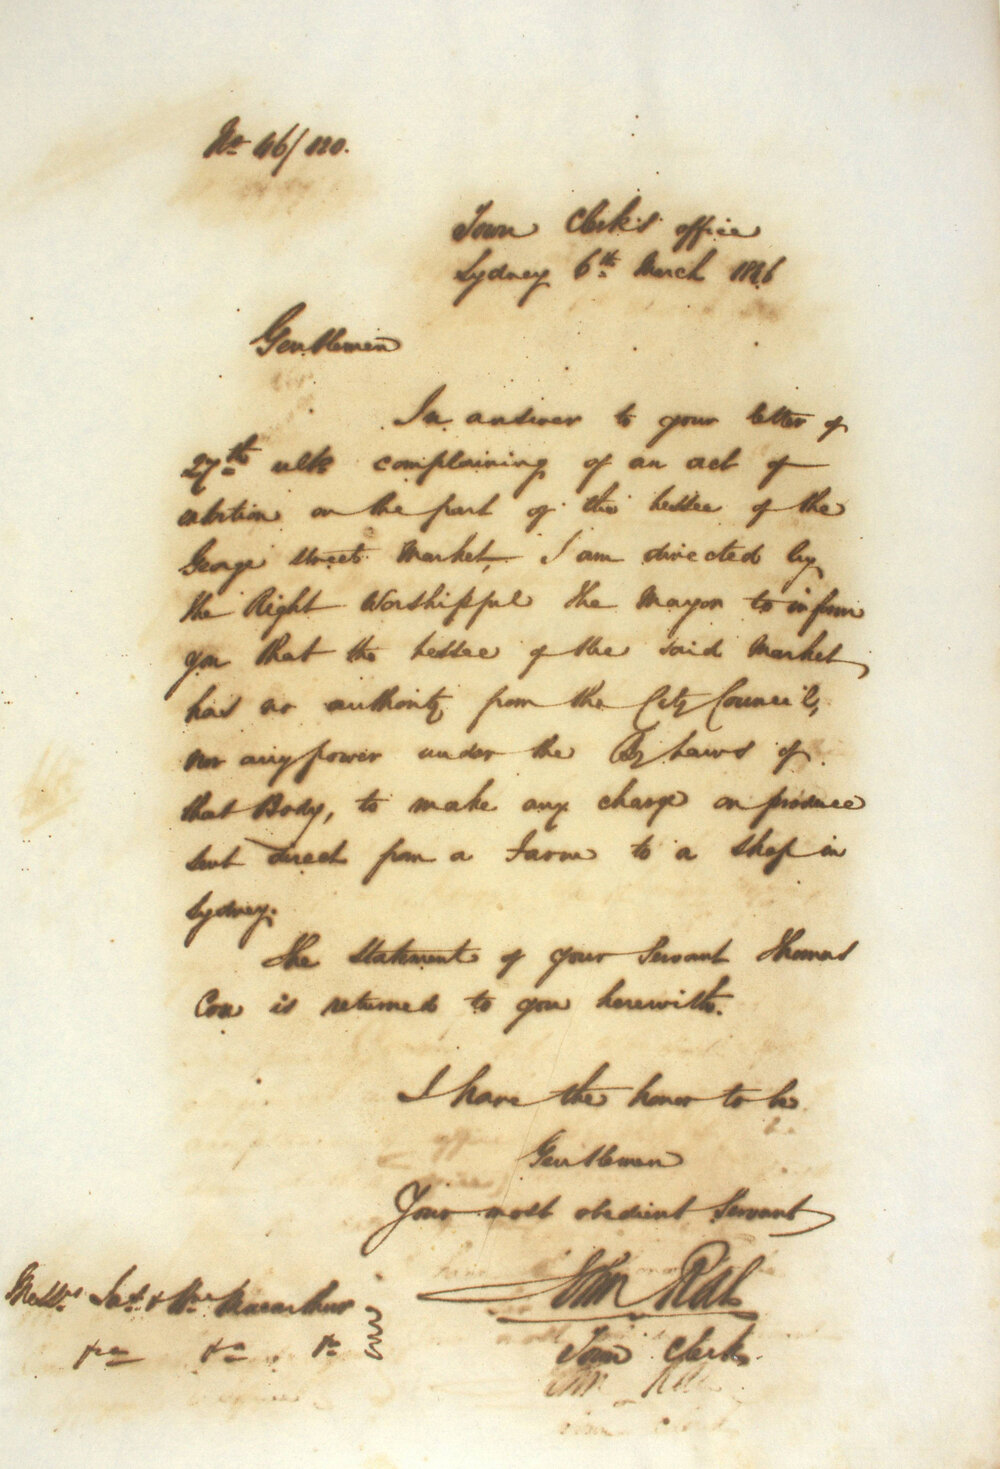 No 46/120.
Town Clerk's office
Sydney 6th March 1846
Gentlemen
In answer to your letter of
27th ulto complaining of an act of
extortion on the part of the Lessee of the
George Street Market, I am directed by
the Right Worshipful the Mayor to inform
you that the Lessee of the said Market,
has no authority from the City Council,
nor any power under the By Laws of
that Body, to make any charge on produce
sent direct from a Farm to a shop in
Sydney.
The statement of your Servant Thomas
Cox is returned to you herewith.
I have the honor to be
Gentlemen
Your most obedient Servant
John Rae
Town Clerk
Messrs Jas. & Wm Macarthur
&ca &ca &ca